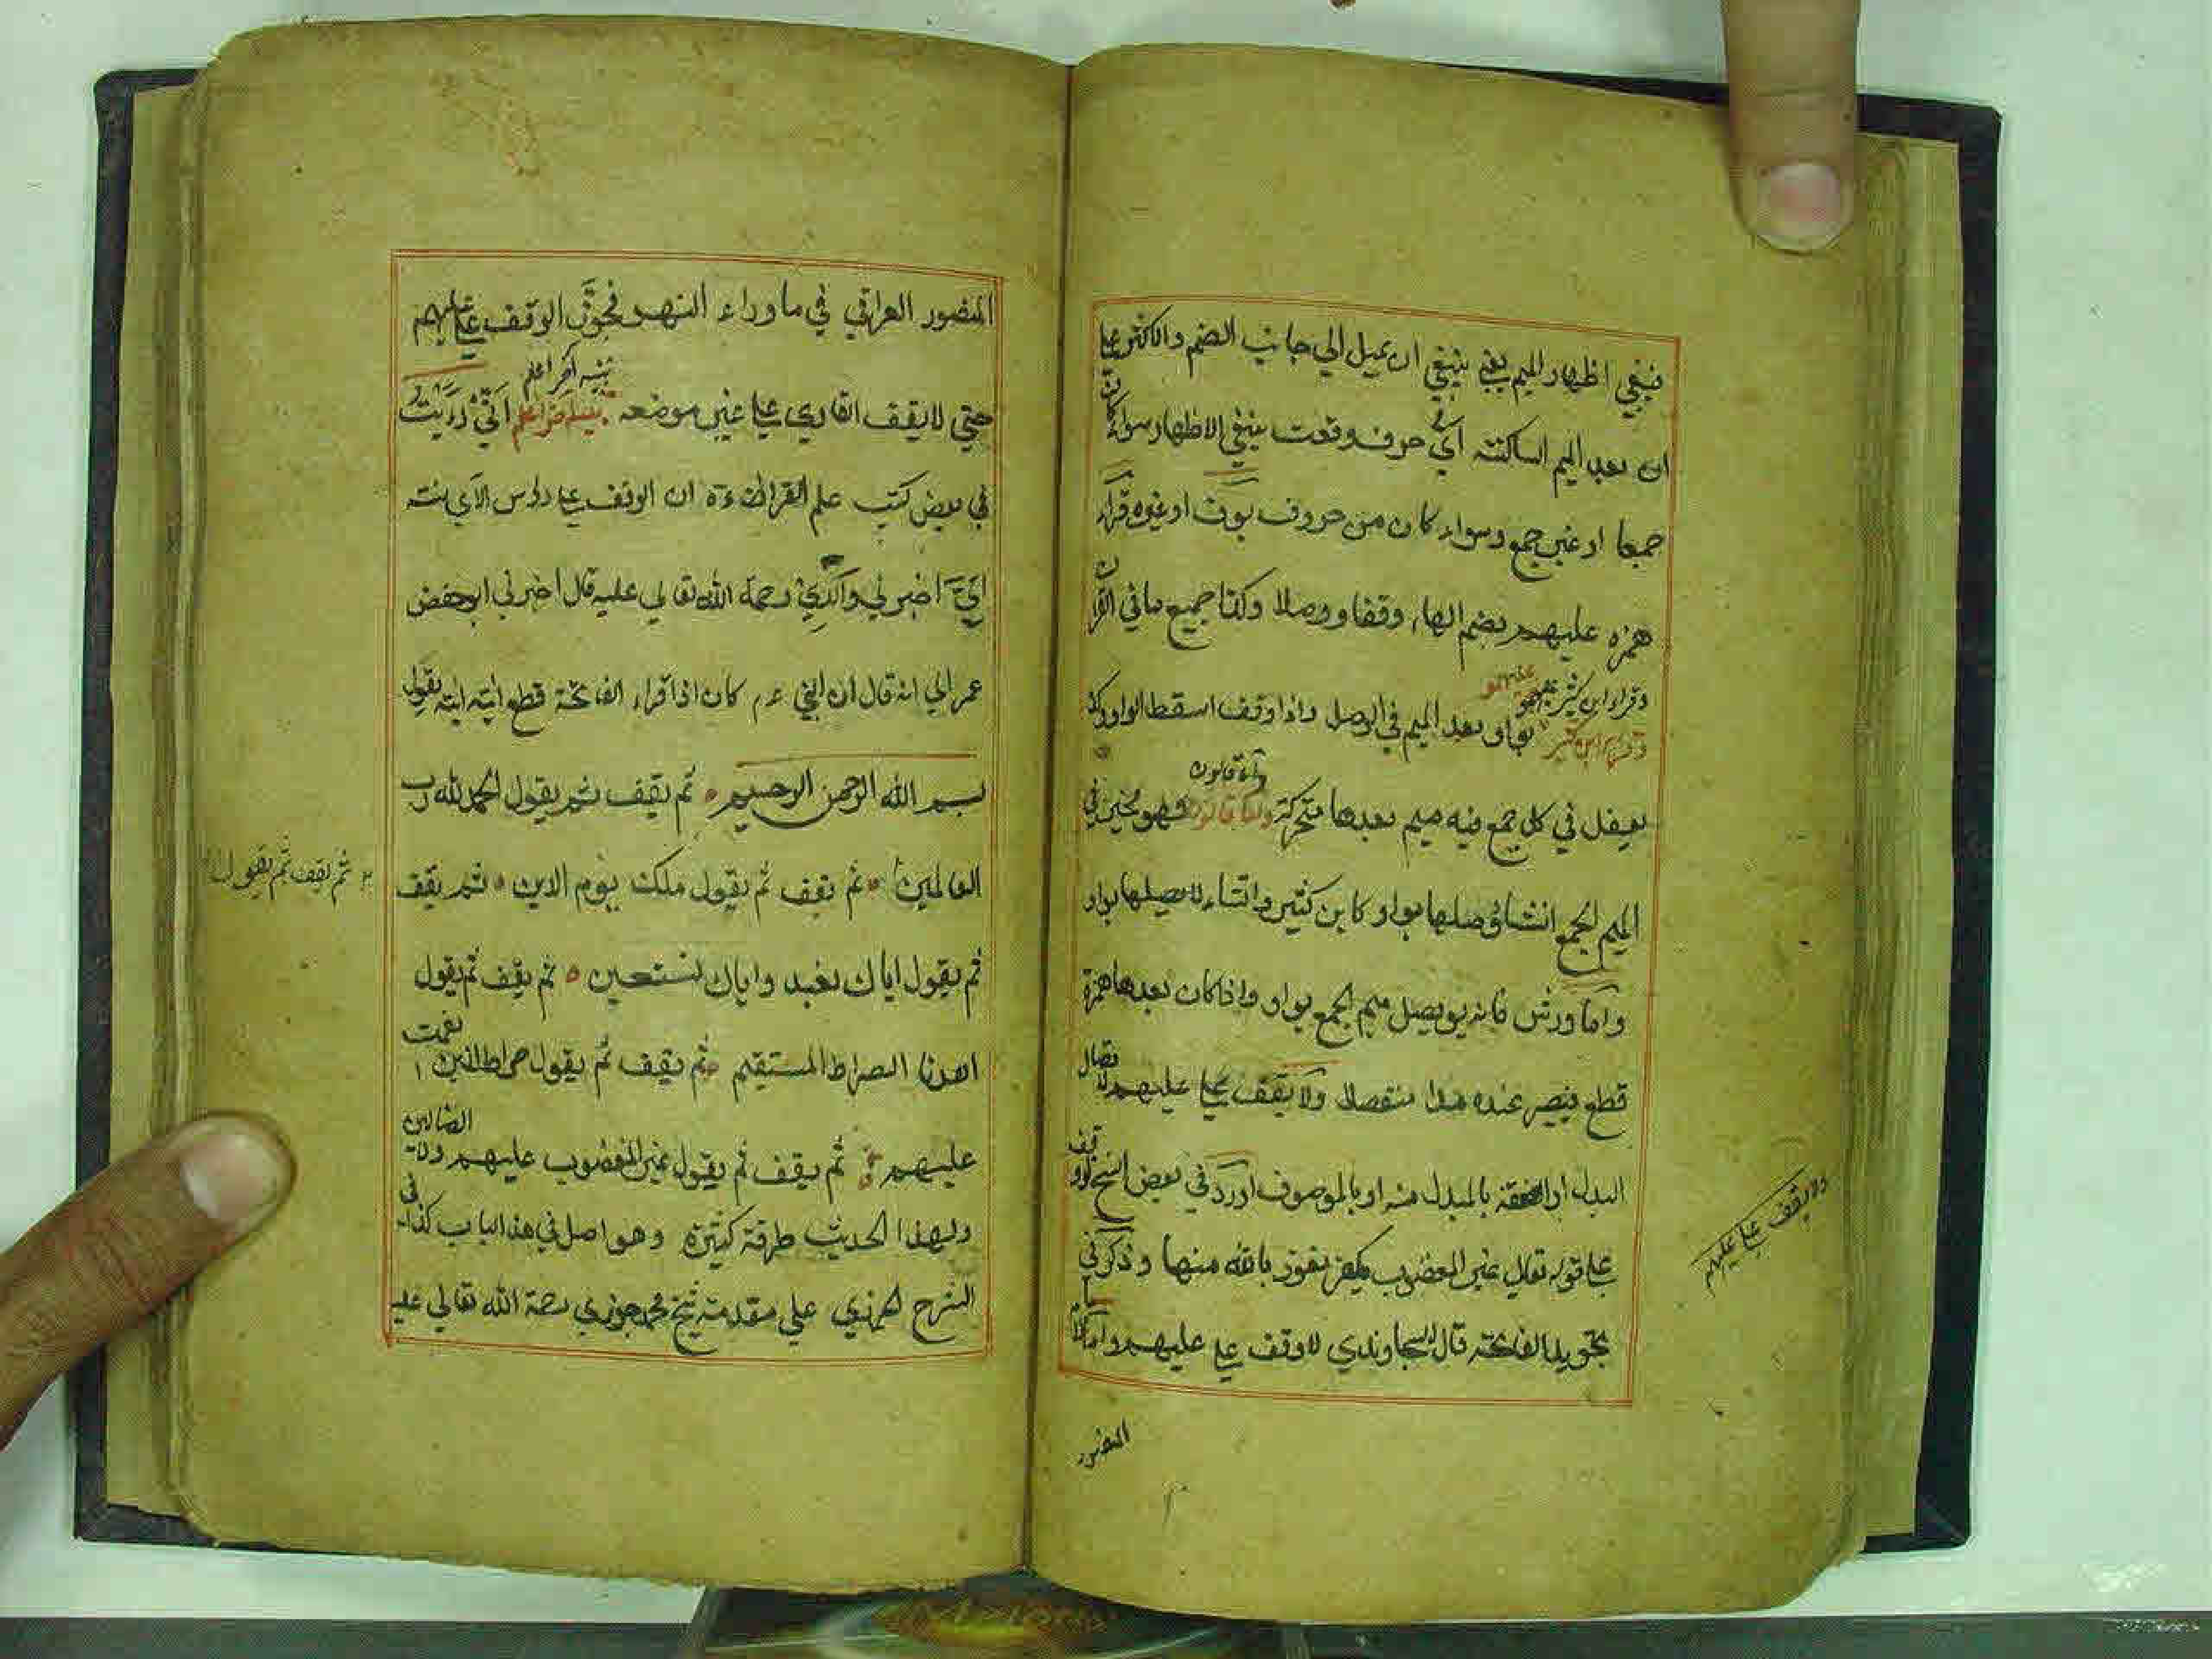 فينبغي اظهار الميم يعني ينبغي ان يميل الي جانب الضم والاكثر علي
ان بعد الميم الساكنة اي حرف وقعت ينبغي الاظهار سواء كان
جمعا او غير جمع وسواء كان من حروف بوف او غيره قراء
همزه عليهم بضم الهاء وقفا ووصلا وكذا جميع ما في القران
وقراء ابن كثير
بواو بعد الميم في الوصل واذا وقف اسقط الواو وكذ
يفعل في كل جمع فيه ميم بعدها متحركة واما قالون فهو مخير في
الميم الجمع انشاء وصلها بواو كابن كثير وانشاء لا يصلها بواو
واما ورش فانه يوصل ميم الجمع بواو واذا كان بعدها همزة
قطع فيصير عنده مدا منفصلا ولا يقف علي عليهم
البدل او الصفة بالمبدل منه او بالموصوف اورد في بعض النسخ لو وقف
علي قوله تعالي غير المغضوب يكفر نعوذ بالله منها وذكر في
تجويد الفاتحة قال السجاوندي لا وقف علي عليهم واما
ولا يقف علي عليهم
المنصور
المنصور العراقي في ما وراء النهر فجوز الوقف علي عليهم
حتي لا يقف القاري علي غير موضعه تنبيه آخر اعلم اني رايت
في بعض كتب علم القراات ان الوقف علي رؤس الآي سنة
اي اخبرني والدي رحمة الله تعالي عليه قال اخبرني ابو حفص
عمر الي انه قال ان النبي عم كان اذا قراء الفاتحة قطع اية اية يقول
بسم الله الرحمن الرحيم ثم يقف ثم يقول الحمد لله رب
العالمين ثم يقف ثم يقول ملك يوم الدين ثم يقف
ثم يقف ثم يقول
ثم يقول اياك نعبد واياك نستعين ثم يقف ثم يقول
اهدنا الصراط المستقيم ثم يقف ثم يقول صراط الذين انعمت
عليهم ثم يقف ثم يقول غير المغضوب عليهم ولا الضالين
ولهذا الحديث طرقة كثيرة وهو اصل في هذا الباب كذا في
الشرح علي مقدمة شيخ محمد جزري رحمة الله تعالي عليه